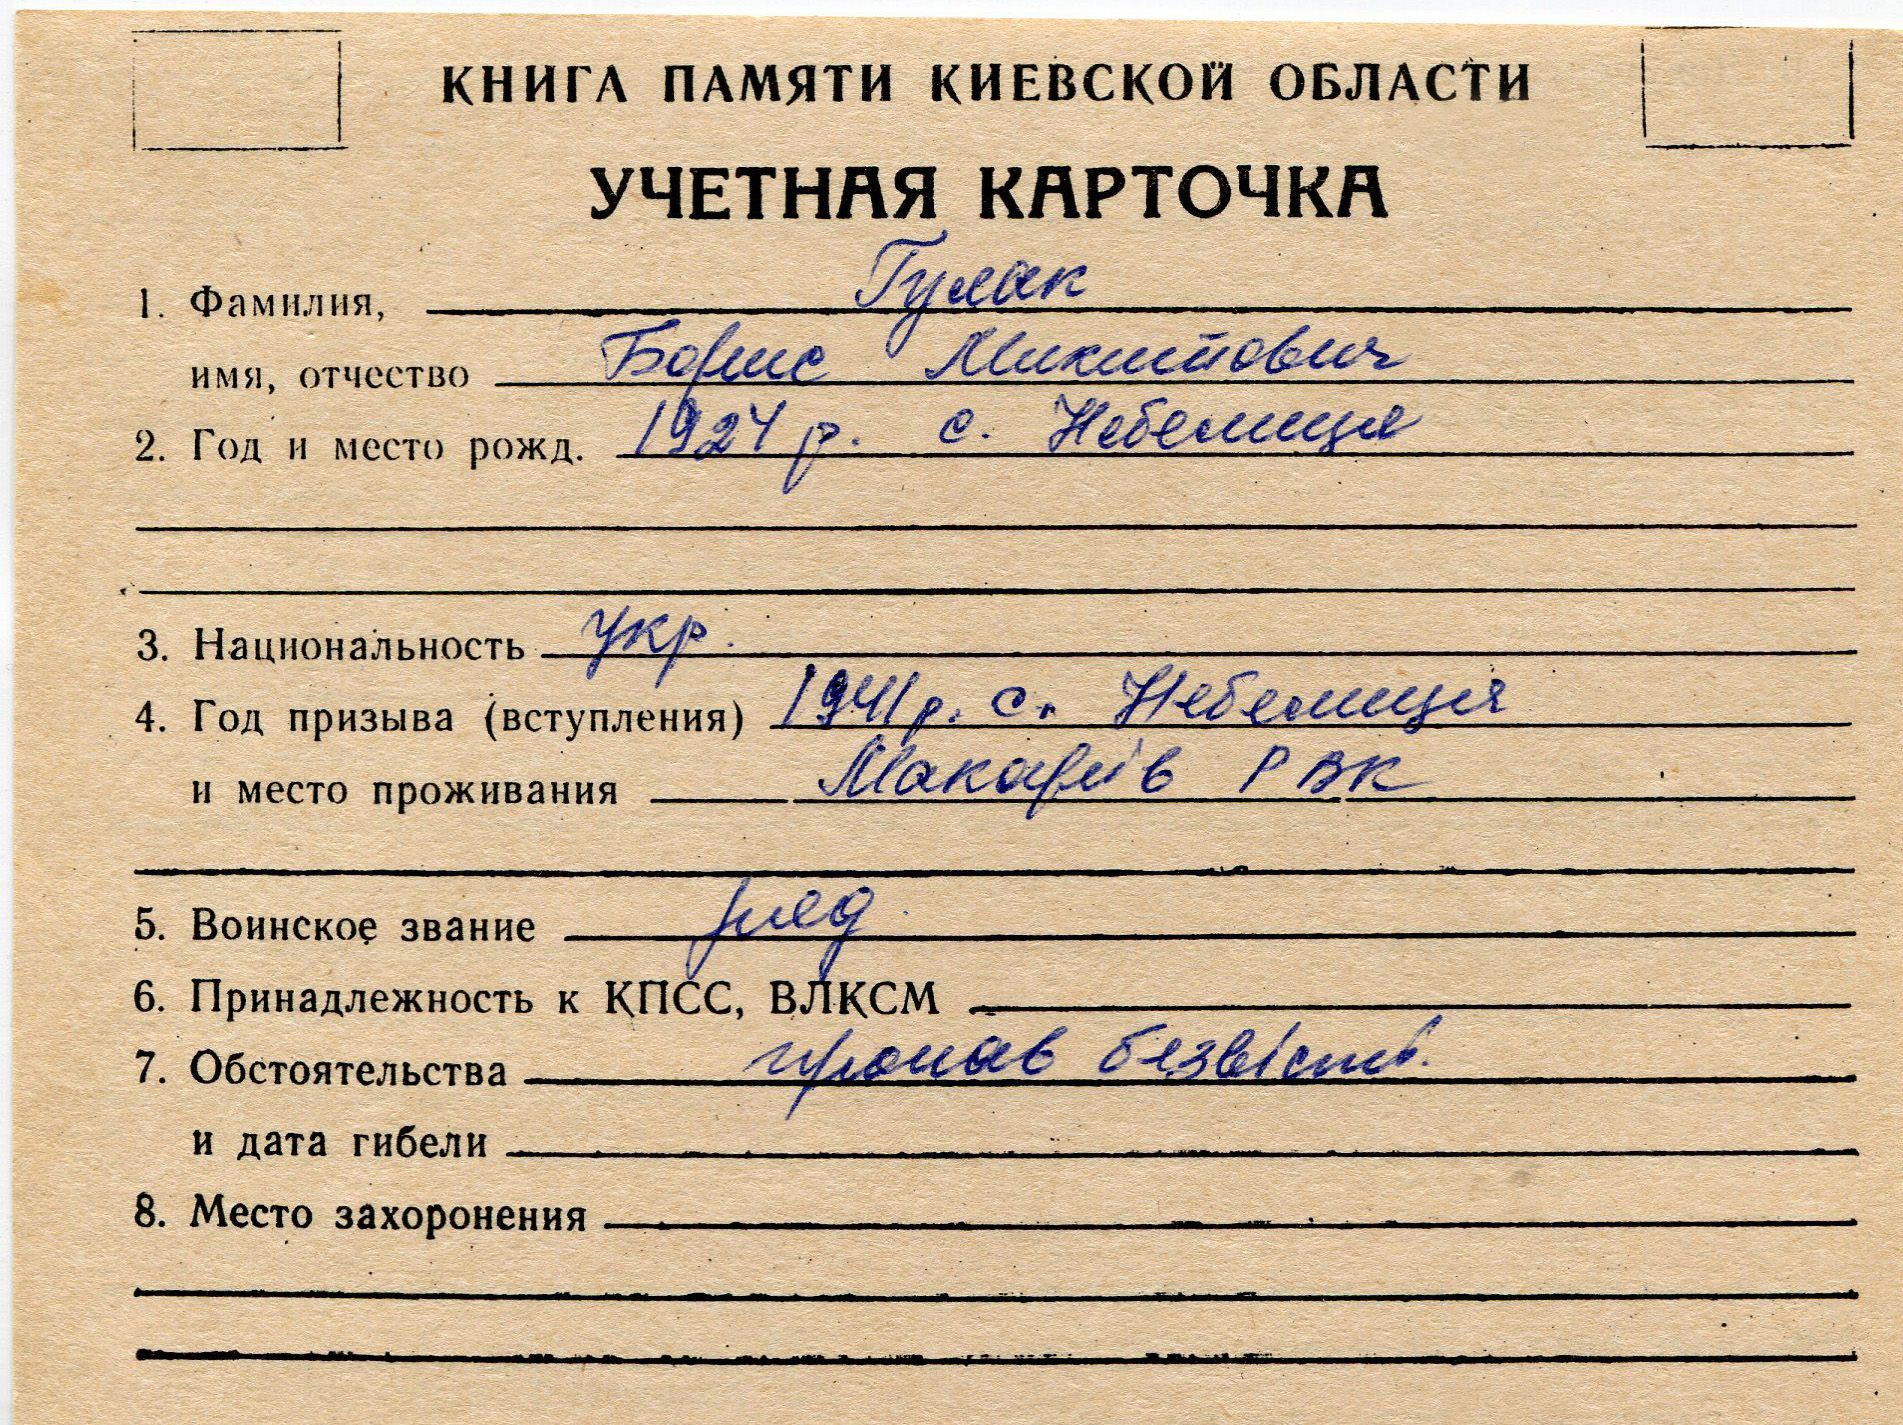 КНИГА ПАМЯТИ КИЕВСКОЙ ОБЛАСТИ
УЧЕТНАЯ КАРТОЧКА
1. Фамилия, Гулак
имя, отчество Борис Микитович
2. Год и место рожд. 1924 р. с. Небелиця
3. Национальность укр.
4. Год призыва (вступления) 1941 р. с. Небелиця
и место проживания Макарів РВК
5. Воинское звание ряд.
6. Принадлежность к КПСС, ВЛКСМ
7. Обстоятельства пропав безвісті.
и дата гибели
8. Место захоронения